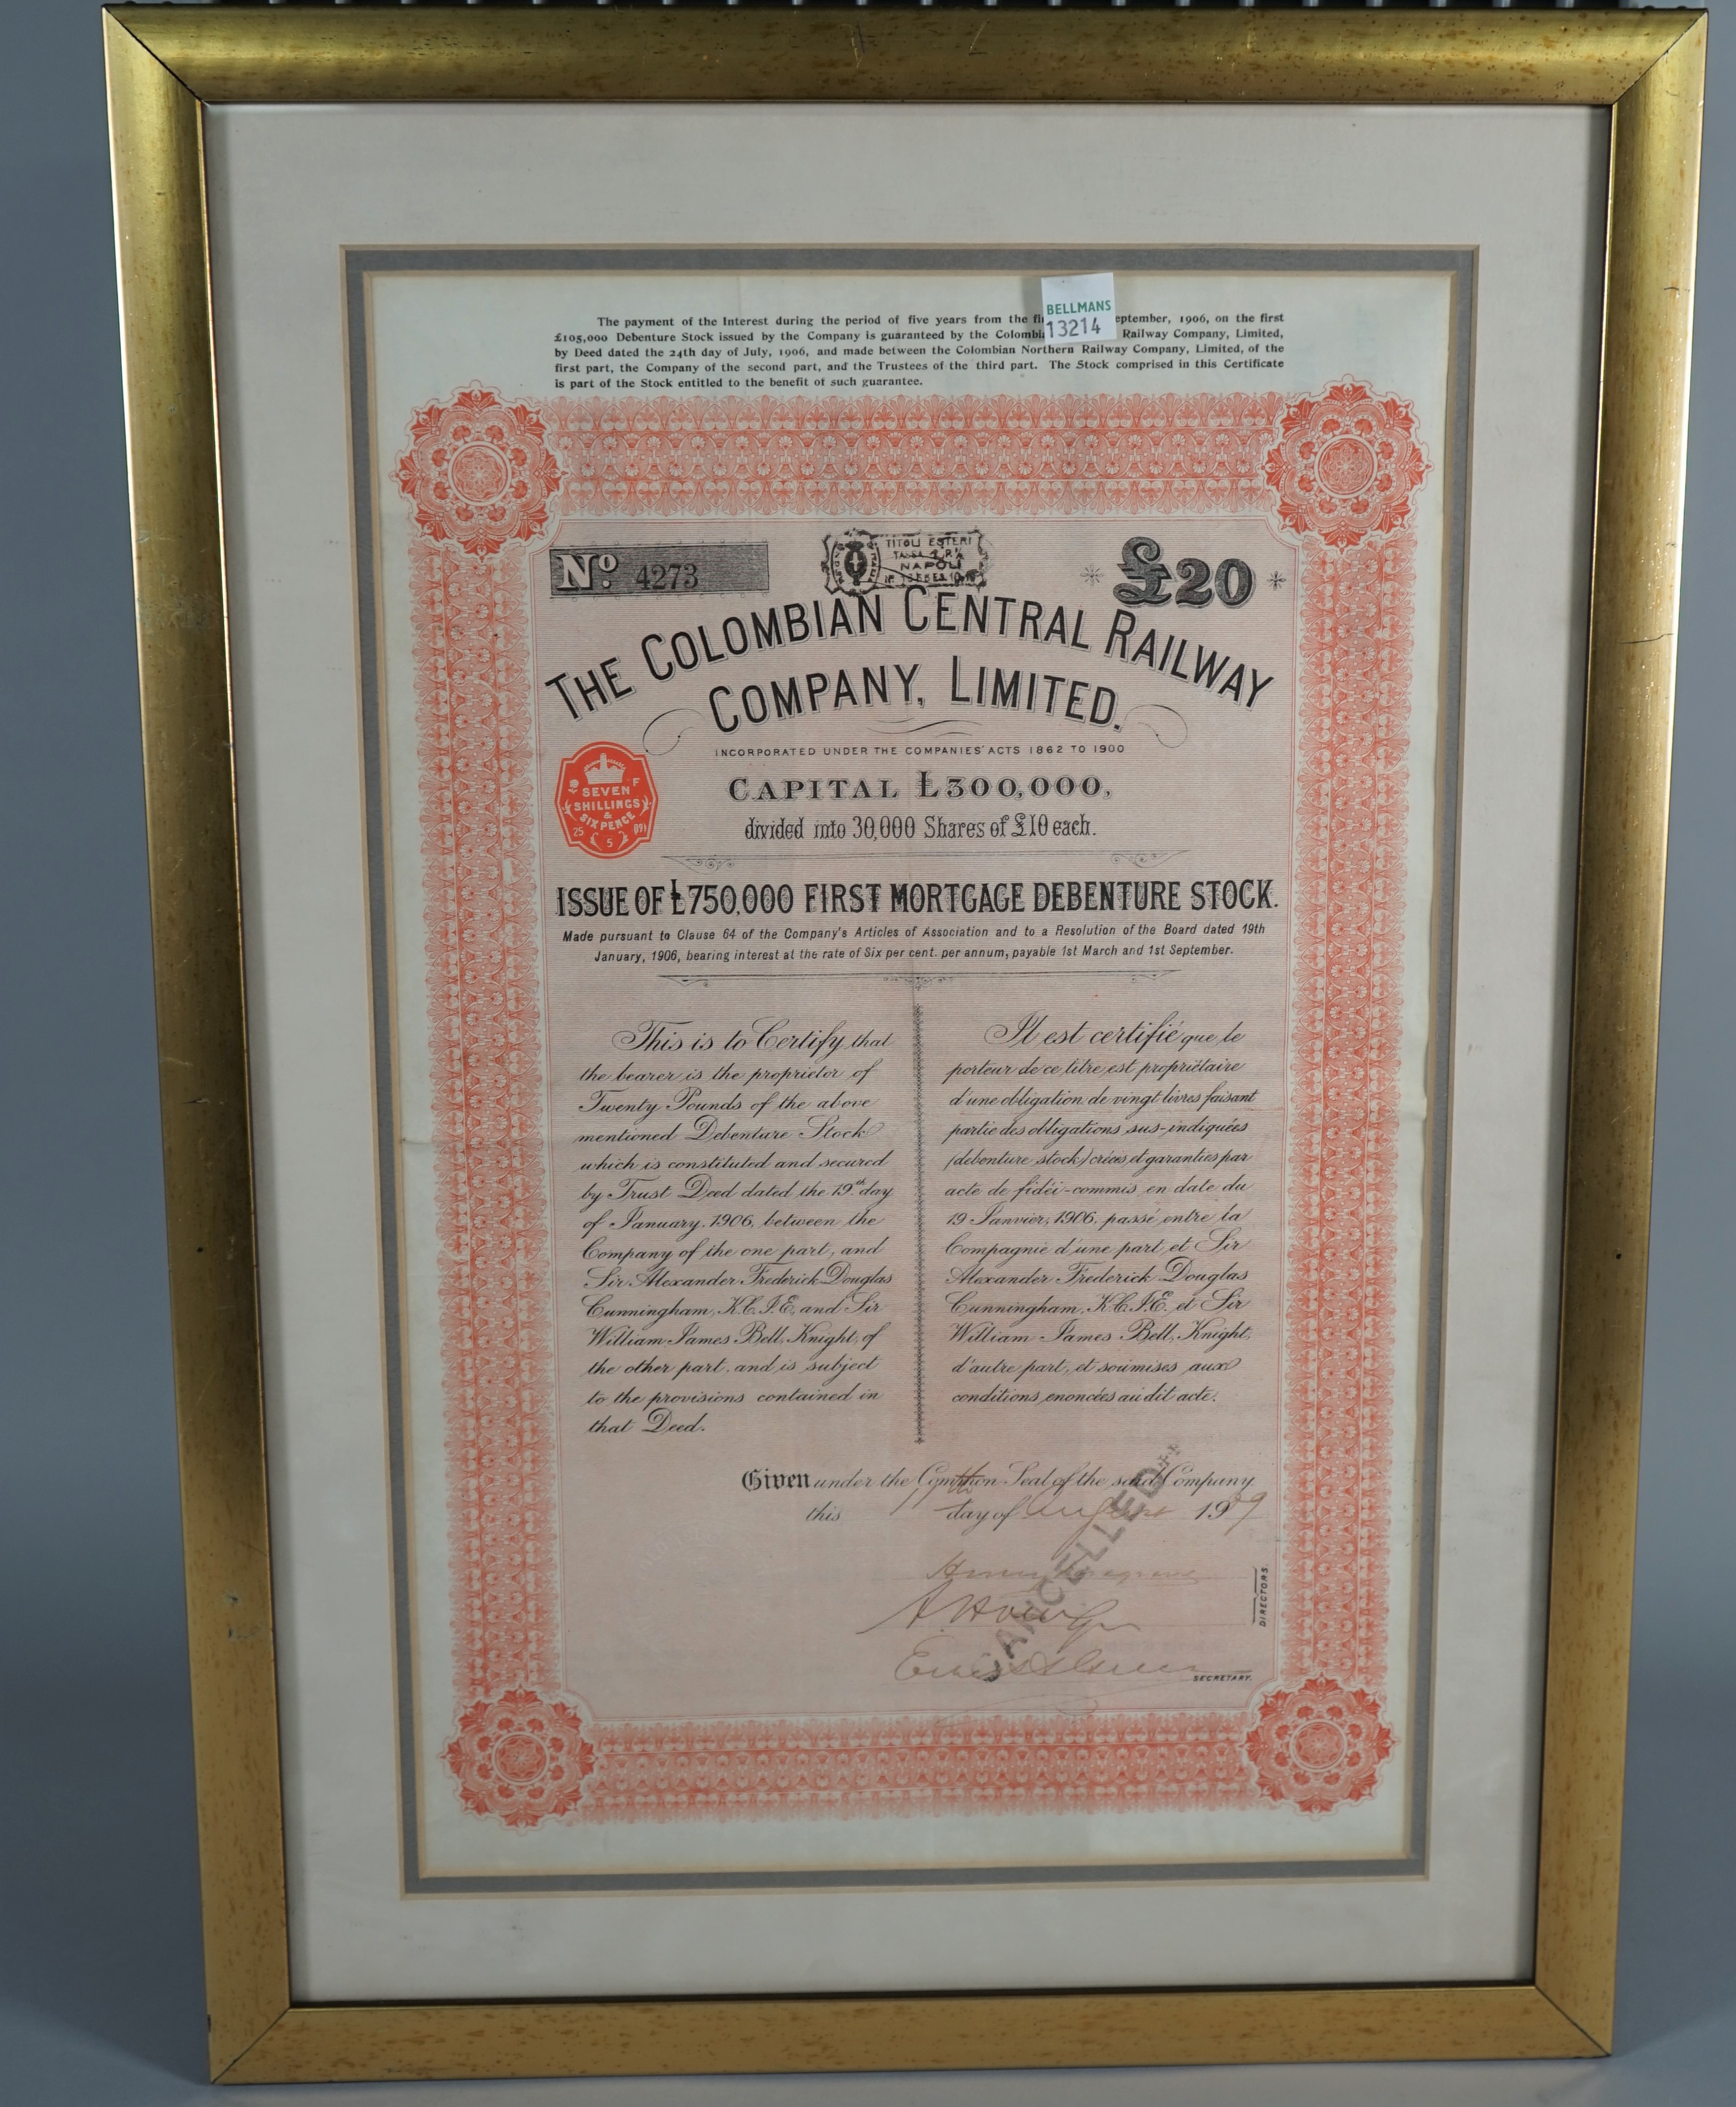 The payment of the Interest during the period of five years from the eptember, 1906, on the first
£105,000 Debenture Stock issued by the Company is guaranteed by the Railway Company, Limited,
by Deed dated the 24th day of July, 1906, and made between the Colombian Northern Railway Company, Limited, of the
first part, the Company of the second part, and the Trustees of the third part. The Stock comprised in this Certificate
is part of the Stock entitled to the benefit of such guarantee.
BELLMANS
13214
No. 4273
TITOLI ESTERI
NAPOLI
£20
THE COLOMBIAN CENTRAL RAILWAY
COMPANY, LIMITED.
INCORPORATED UNDER THE COMPANIES' ACTS 1862 TO 1900
CAPITAL £300,000,
divided into 30,000 Shares of £10 each.
F
SEVEN
SHILLINGS
&
SIX PENCE
25
5
ISSUE OF £750,000 FIRST MORTGAGE DEBENTURE STOCK.
Made pursuant to Clause 64 of the Company's Articles of Association and to a Resolution of the Board dated 19th
January, 1906, bearing interest at the rate of Six per cent. per annum, payable 1st March and 1st September.
This is to Certify that
the bearer is the proprietor of
Twenty Pounds of the above
mentioned Debenture Stock
which is constituted and secured
by Trust Deed dated the 19th day
of January, 1906, between the
Company of the one part, and
Sir Alexander Frederick Douglas
Cunningham, K.C.I.E. and Sir
William James Bell, Knight, of
the other part, and is subject
to the provisions contained in
that Deed.
Il est certifié que le
porteur de ce titre est propriétaire
d'une obligation de vingt livres faisant
partie des obligations sus-indiquées
(debenture stock) créées et garanties par
acte de fidéi-commis en date du
19 Janvier, 1906, passé entre la
Compagnie d'une part, et Sir
Alexander Frederick Douglas
Cunningham, K.C.I.E. et Sir
William James Bell, Knight,
d'autre part, et soumises aux
conditions enoncées audit acte.
Given under the Common Seal of the said Company
this day of August 1909
CANCELLED
DIRECTORS.
SECRETARY.